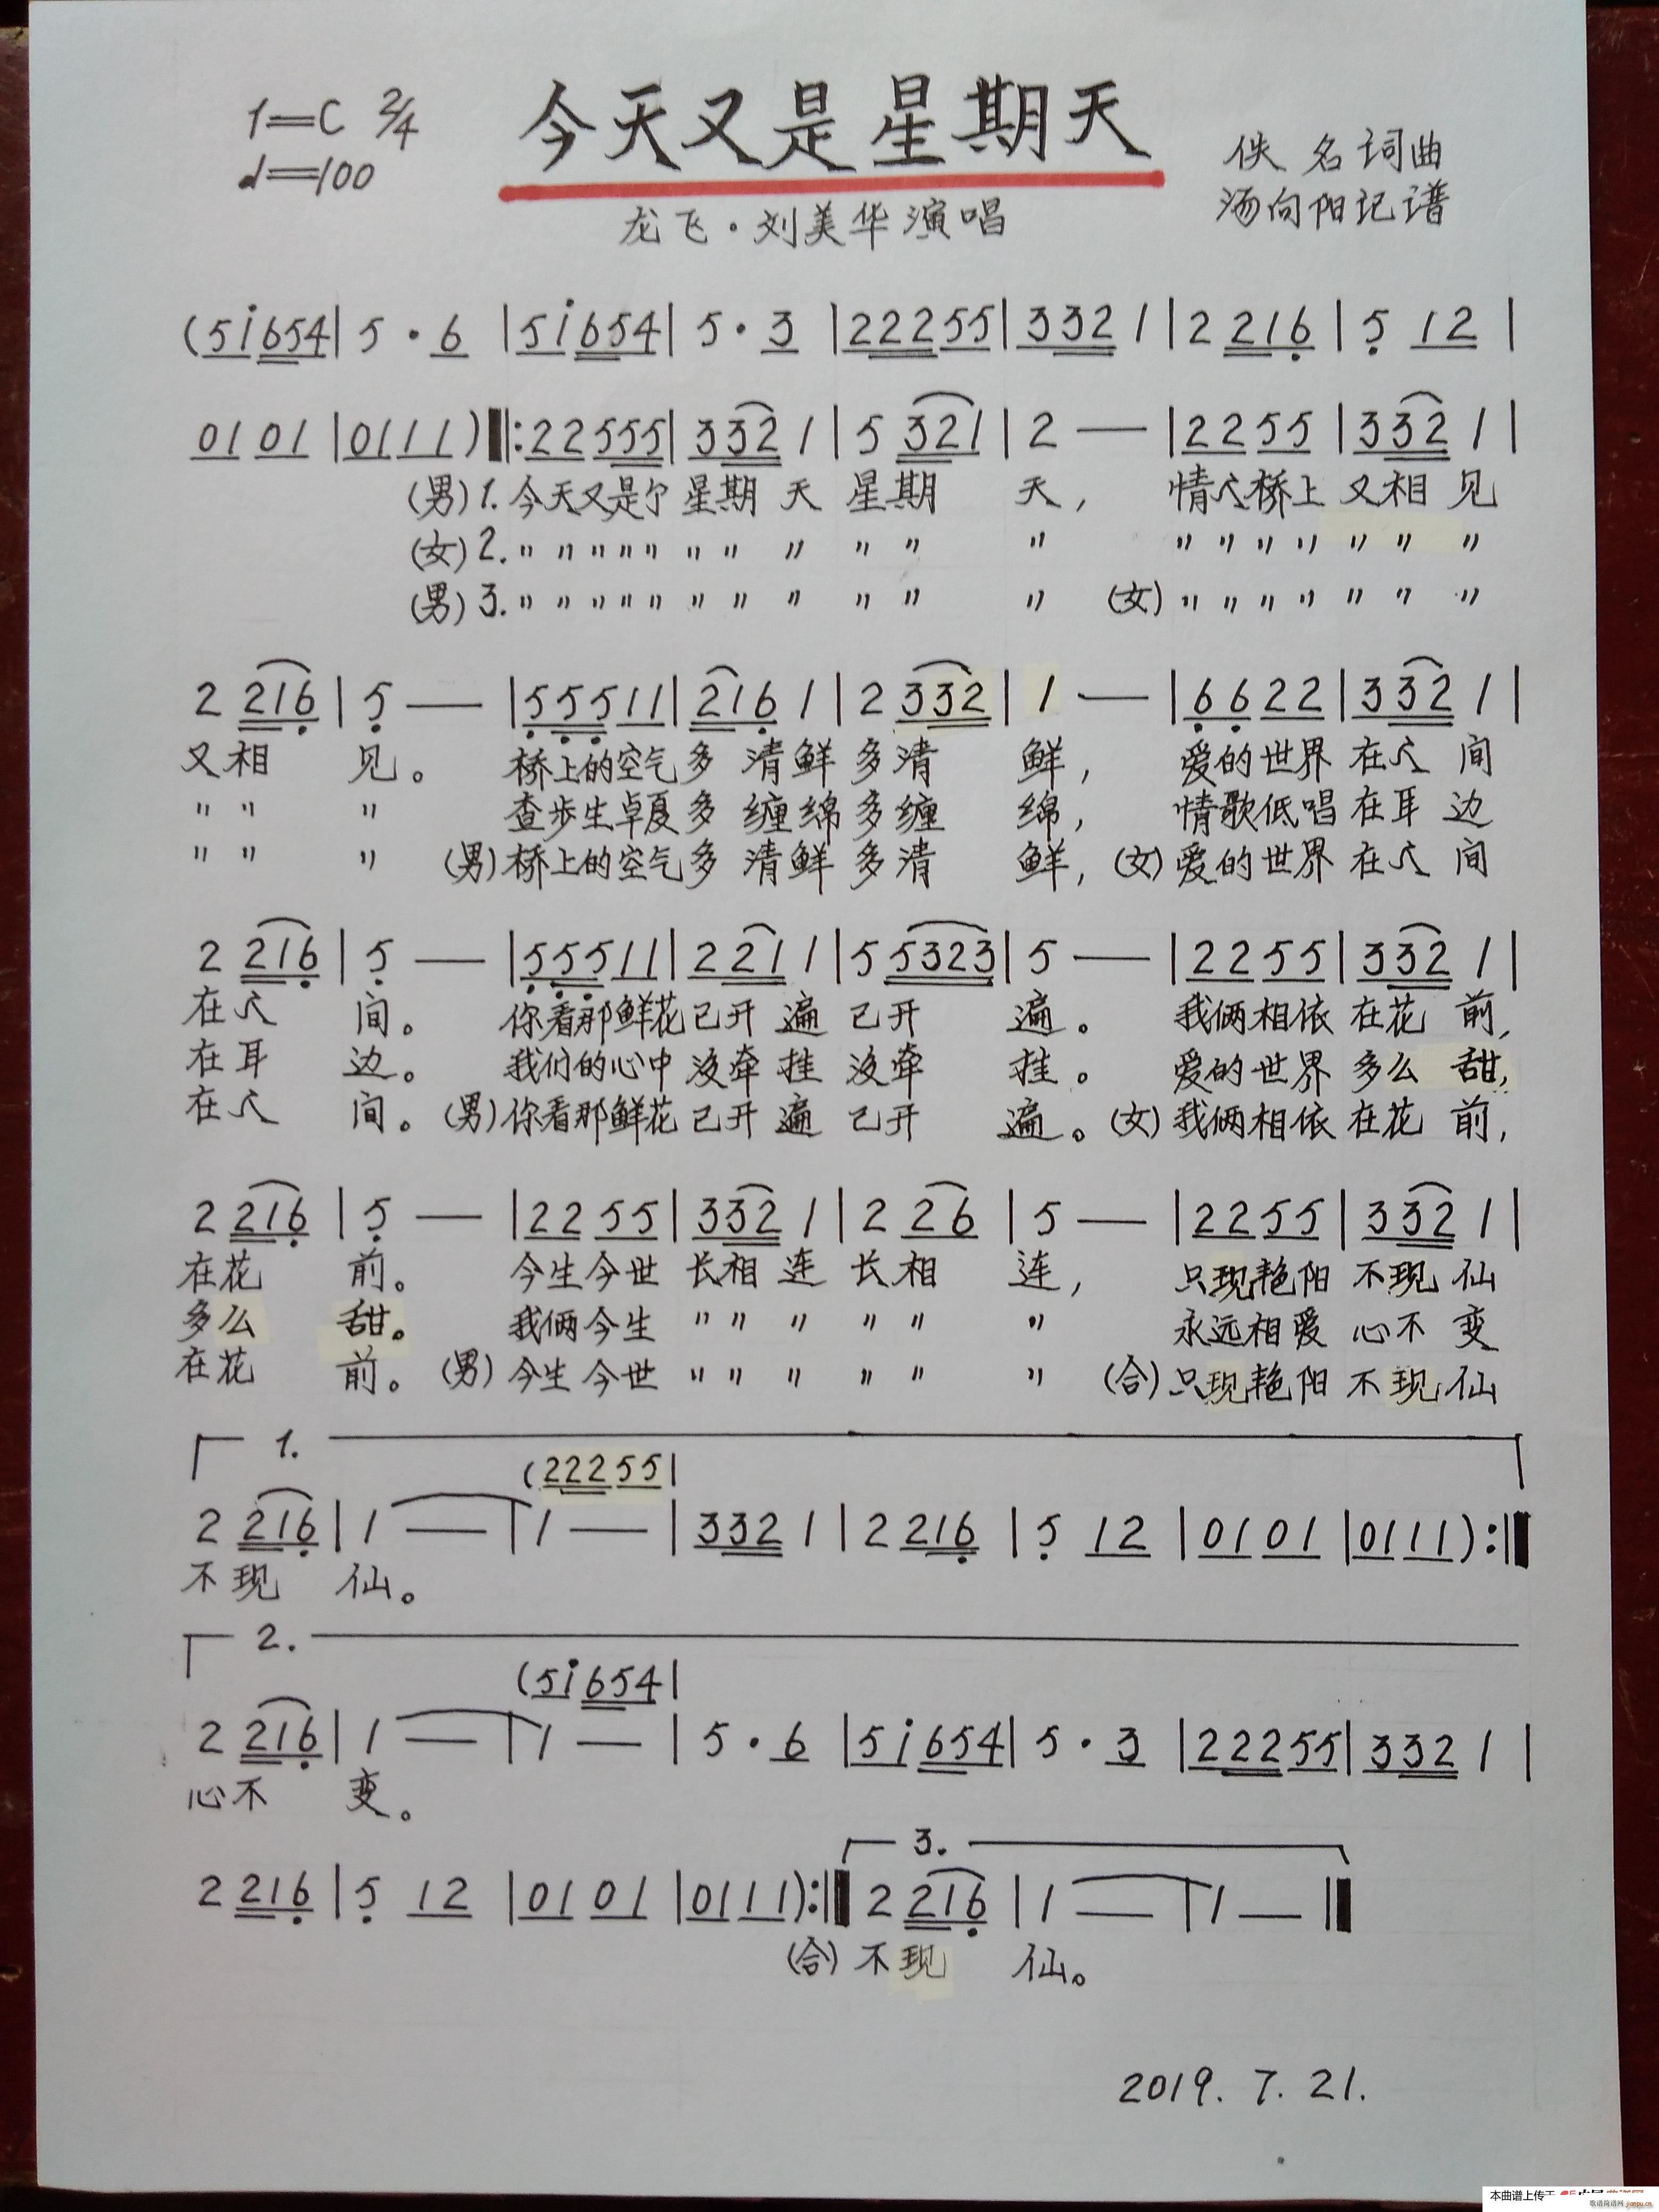 1=C 2/4
♩=100
今天又是星期天
佚 名词曲
汤向阳记谱
龙飞·刘美华演唱
(5i654|5·6|5i654|5·3|22255|3321|2216|512|
0101|0111)‖:22555|3321|5321|2—|2255|3321|
(男)1.今天又是个星期天星期天,情人桥上又相见
(女)2.〃〃〃〃〃〃〃〃〃〃〃〃〃〃〃〃〃〃
(男)3.〃〃〃〃〃〃〃〃〃〃〃(女)〃〃〃〃〃〃〃
2216|5—|55511|2161|2332|1—|6622|3321|
又相见。桥上的空气多清鲜多清鲜,爱的世界在人间
〃〃〃查步生卓夏多缠绵多缠绵,情歌低唱在耳边
〃〃〃(男)桥上的空气多清鲜多清鲜,(女)爱的世界在人间
2216|5—|55511|2211|55323|5—|2255|3321|
在人间。你看那鲜花已开遍已开遍。我俩相依在花前,
在耳边。我们的心中没牵挂没牵挂。爱的世界多么甜,
在人间。(男)你看那鲜花已开遍已开遍。(女)我俩相依在花前,
2216|5—|2255|3321|226|5—|2255|3321|
在花前。今生今世长相连长相连,只现艳阳不现仙
多么甜。我俩今生〃〃〃〃〃〃永远相爱心不变
在花前。(男)今生今世〃〃〃〃〃〃(合)只现艳阳不现仙
1.
(22255|
2216|1—|1—|3321|2216|512|0101|0111):‖
不现仙。
2.
(5i654|
2216|1—|1—|5·6|5i654|5·3|22255|3321|
心不变。
3.
2216|512|0101|0111):‖2216|1—|1—‖
(合)不现仙。
2019.7.21.
本曲谱上传于
歌谱简谱网 jianpu.cn